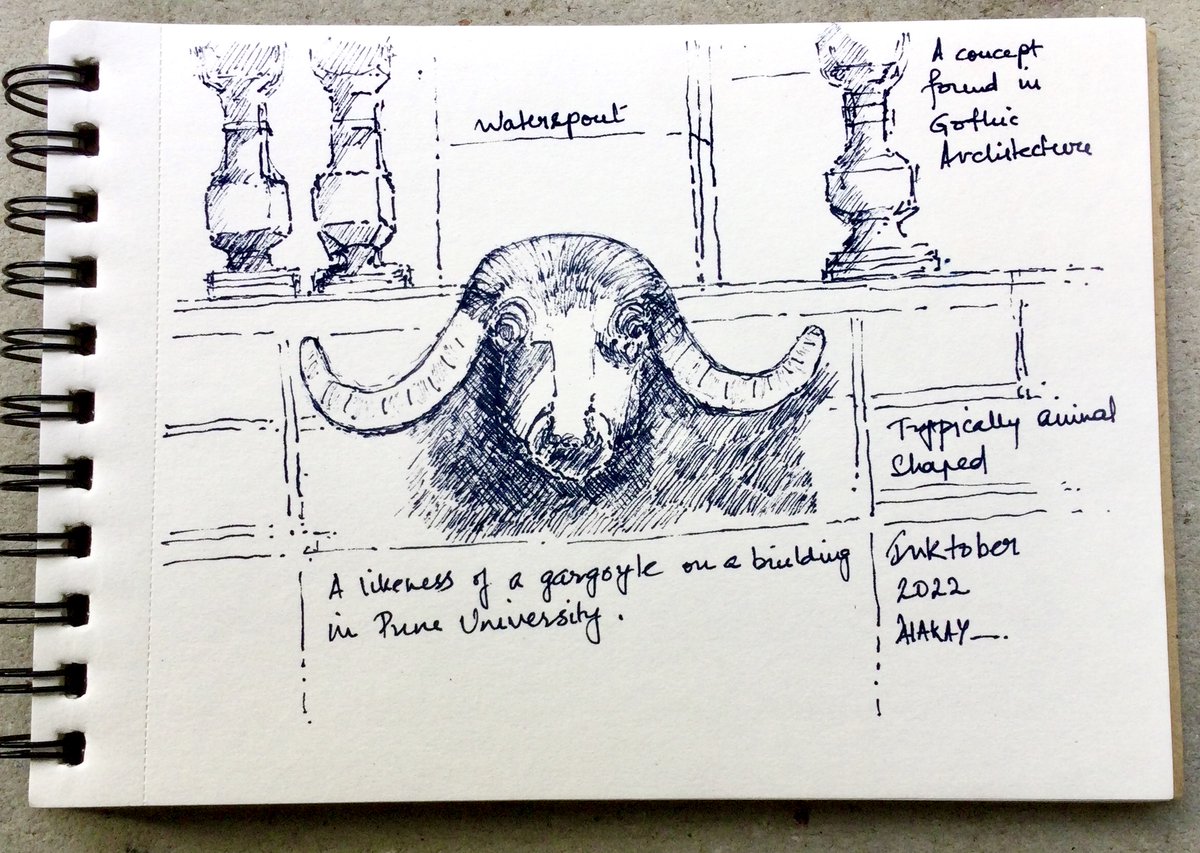 Waterspout
A concept
found in
Gothic
Architecture
Typpically animal
Shaped
A likeness of a gargoyle on a building
in Pune University.
Inktober
2022